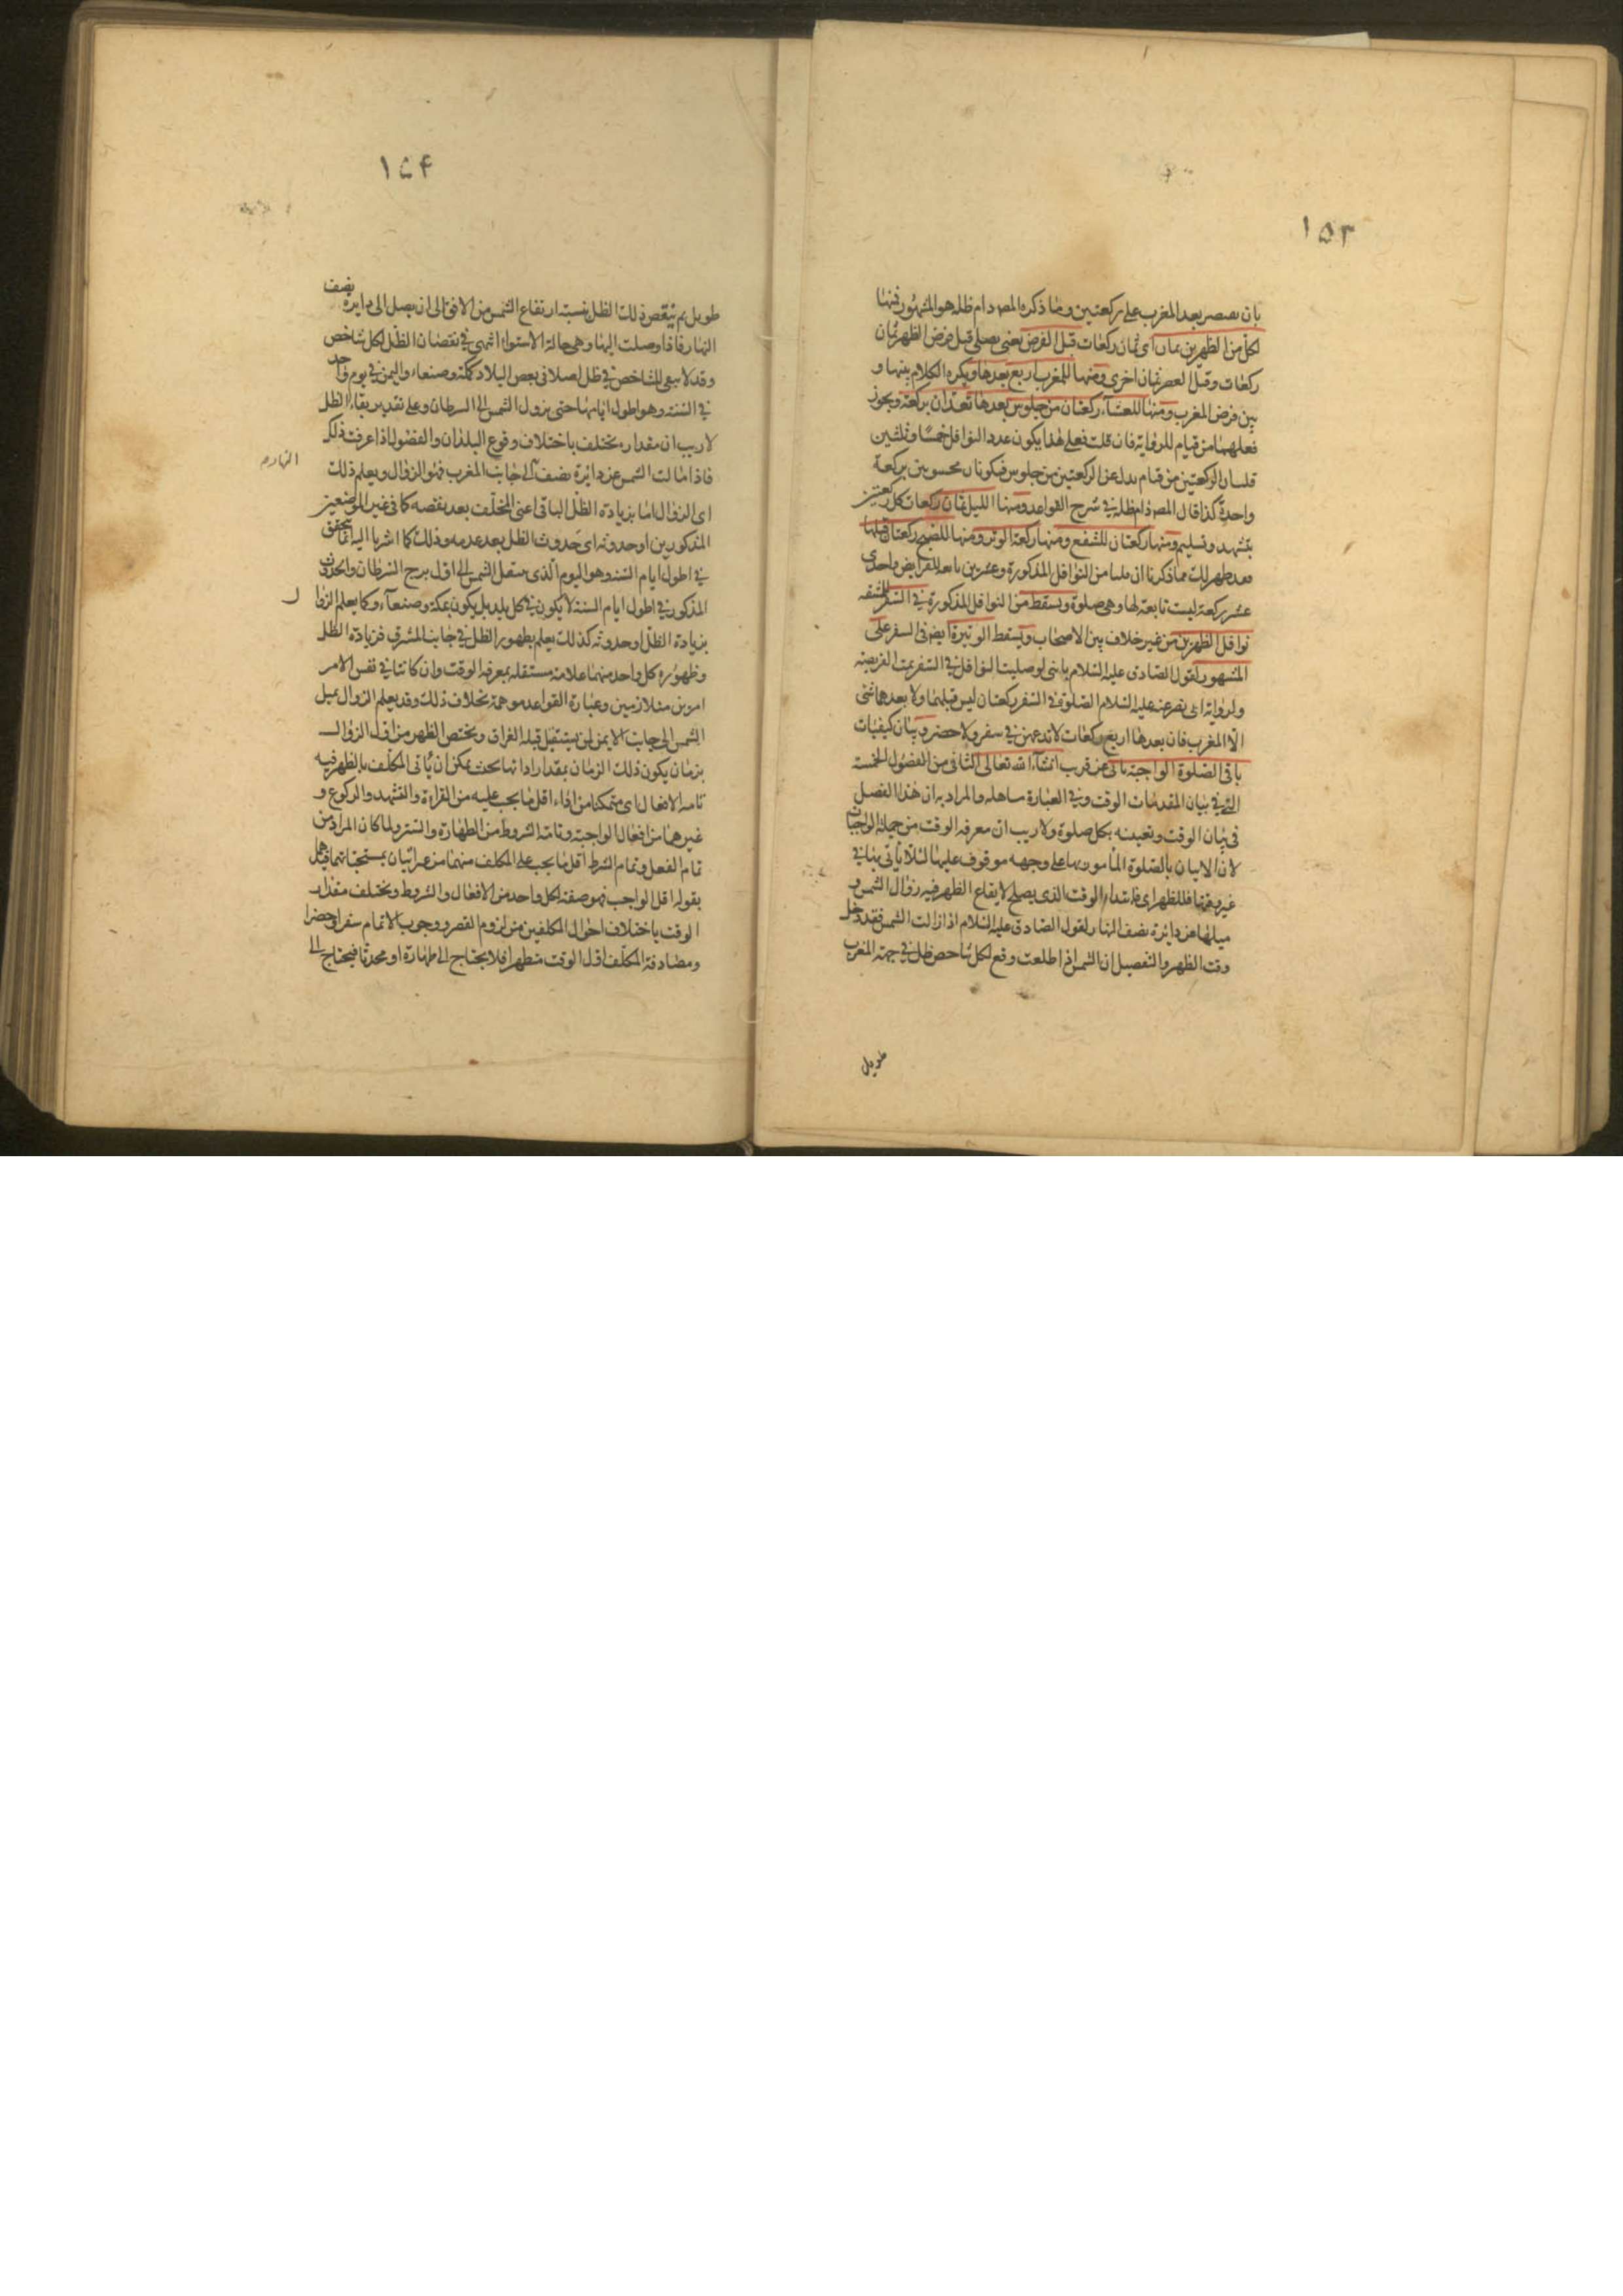 ١٥٣
بان يقتصر بعد المغرب على ركعتين وما ذكره المصد دام ظله هو المشهور فمنها
لكل من الظهرين ثمان اى ثمان ركعات قبل الفرض يعنى يصلى قبل فرض الظهر ثمان
ركعات وقبل العصر ثمان اخرى ومنها للمغرب اربع بعدها ويكره الكلام بينها و
بين فرض المغرب ومنها للعشآء ركعتان من جلوس بعدها تعدان بركعة ويجوز
فعلهما من قيام للرواية فان قلت فعلى هذا يكون عدد النوافل خمسًا وثلثين
قلت ان الركعتين من قيام بدل عن الركعتين من جلوس فيكونان محسوبتين بركعة
واحدة كذا قال المصد دام ظله فى شرح القواعد ومنها الليل ثمان ركعات كل ركعتين
بتشهد وتسليم ومنها ركعتان للشفع ومنها ركعة الوتر ومنها للصبح ركعتان قبلها
فقد ظهر لك مما ذكرنا ان من النوافل المذكورة وعشرين تابعة للفرايض واحدى
عشر ركعة ليست تابعة لها وهى صلوة ويسقط من النوافل المذكورة فى السفر للمشقه
نوافل الظهرين من غير خلاف بين الاصحاب ويسقط الوتيرة ايضا فى السفر على
المشهور لقول الصادق عليه السلام يا بنى لو صليت النوافل فى السفر تمت الفريضة
ولرواية ابى بصير عنه عليه السلام الصلوة فى السفر ركعتان ليس قبلهما ولا بعدهما شئ
الا المغرب فان بعدها اربع ركعات لا تدعهن فى سفر ولا حضر وبيان كيفيات
باقى الصلوة الواجبة ياتى عن قريب انشآء الله تعالى الثانى من الفصول الخمسة
التى فى بيان المقدمات الوقت وفى العبارة مساهله والمراد به ان هذا الفصل
فى بيان الوقت وتعيينه بكل صلوة ولا ريب ان معرفة الوقت من جملة الواجبات
لان الاتيان بالصلوة المأمور بها على وجهه موقوف عليها لئلا ياتى بها فى
غير وقتها فللظهر اى فابتداء الوقت الذى يصلح لايقاع الظهر فيه زوال الشمس و
ميلها عن دائرة نصف النهار لقول الصادق عليه السلام اذا زالت الشمس فقد دخل
وقت الظهر والتفصيل ان الشمس اذا طلعت وقع لكل شاخص ظل فى جهة المغرب
طويل
١٥۴
طويل ثم ينقص ذلك الظل بنسبة ارتفاع الشمس من الافق الى ان يصل الى دايرة نصف
النهار فاذا وصلت اليها وهى حالة الاستواء انتهى فى نقصان الظل لكل شاخص
وقد لا يبقى للشاخص فى ظل اصلا فى بعض البلاد كمكة وصنعاء واليمن فى يوم واحد
فى السنة وهو اطول ايامها حتى نزول الشمس الى السرطان وعلى تقدير بقاء الظل
لا ريب ان مقداره يختلف باختلاف وقوع البلدان والفصول اذا عرفت ذلك
فاذا مالت الشمس عن دائرة نصف الى جانب المغرب فهو الزوال ويعلم ذلك
النهار م
اى الزوال اما بزيادة الظل الباقى اعنى المخلّف بعد نقصه كما فى غير الموضعين
المذكورين او حدوثه اى حدوث الظل بعد عدمه وذلك كما اشرنا اليه انما يتحقق
فى اطول ايام السنة وهو اليوم الذى ينتقل الشمس الى اول برج السرطان والحدوث
المذكور فى اطول ايام السنة لا يكون فى كل بلد بل يكون بمكة وصنعآء وكما يعلم الزوا ل
بزيادة الظل او حدوثه كذلك يعلم بظهور الظل فى جانب المشرق فزيادة الظل
وظهوره كل واحد منهما علامة مستقلة بمعرفة الوقت وان كانتا فى نفس الامر
امرين متلازمين وعبارة القواعد موهمة بخلاف ذلك وقد يعلم الزوال بميل
الشمس الى جانب الايمن لمن يستقبل قبلة العراق ويختص الظهر من اول الزوال
بزمان يكون ذلك الزمان بمقدار ادائها بحيث يمكن ان يأتى المكلّف بالظهر فيه
تامة الافعال اى متمكنا من اداء اقل ما يجب عليه من القراءة والتشهد والركوع و
غيرهما من افعال الواجبة وتامة الشروط من الطهارة والستر ولما كان المراد من
تمام الفعل وتمام الشرط اقل ما يجب على المكلف منهما من غير اتيان بمستحباتهما قيد
بقوله اقل الواجب فهو صفة لكل واحد من الافعال والشروط ويختلف مقدار
الوقت باختلاف احوال المكلفين من لزوم القصر ووجوب الاتمام سفرا وحضرا
ومصادفة المكلّف اول الوقت متطهرا فلا يحتاج الى طهارة او محدثا فيحتاج الى